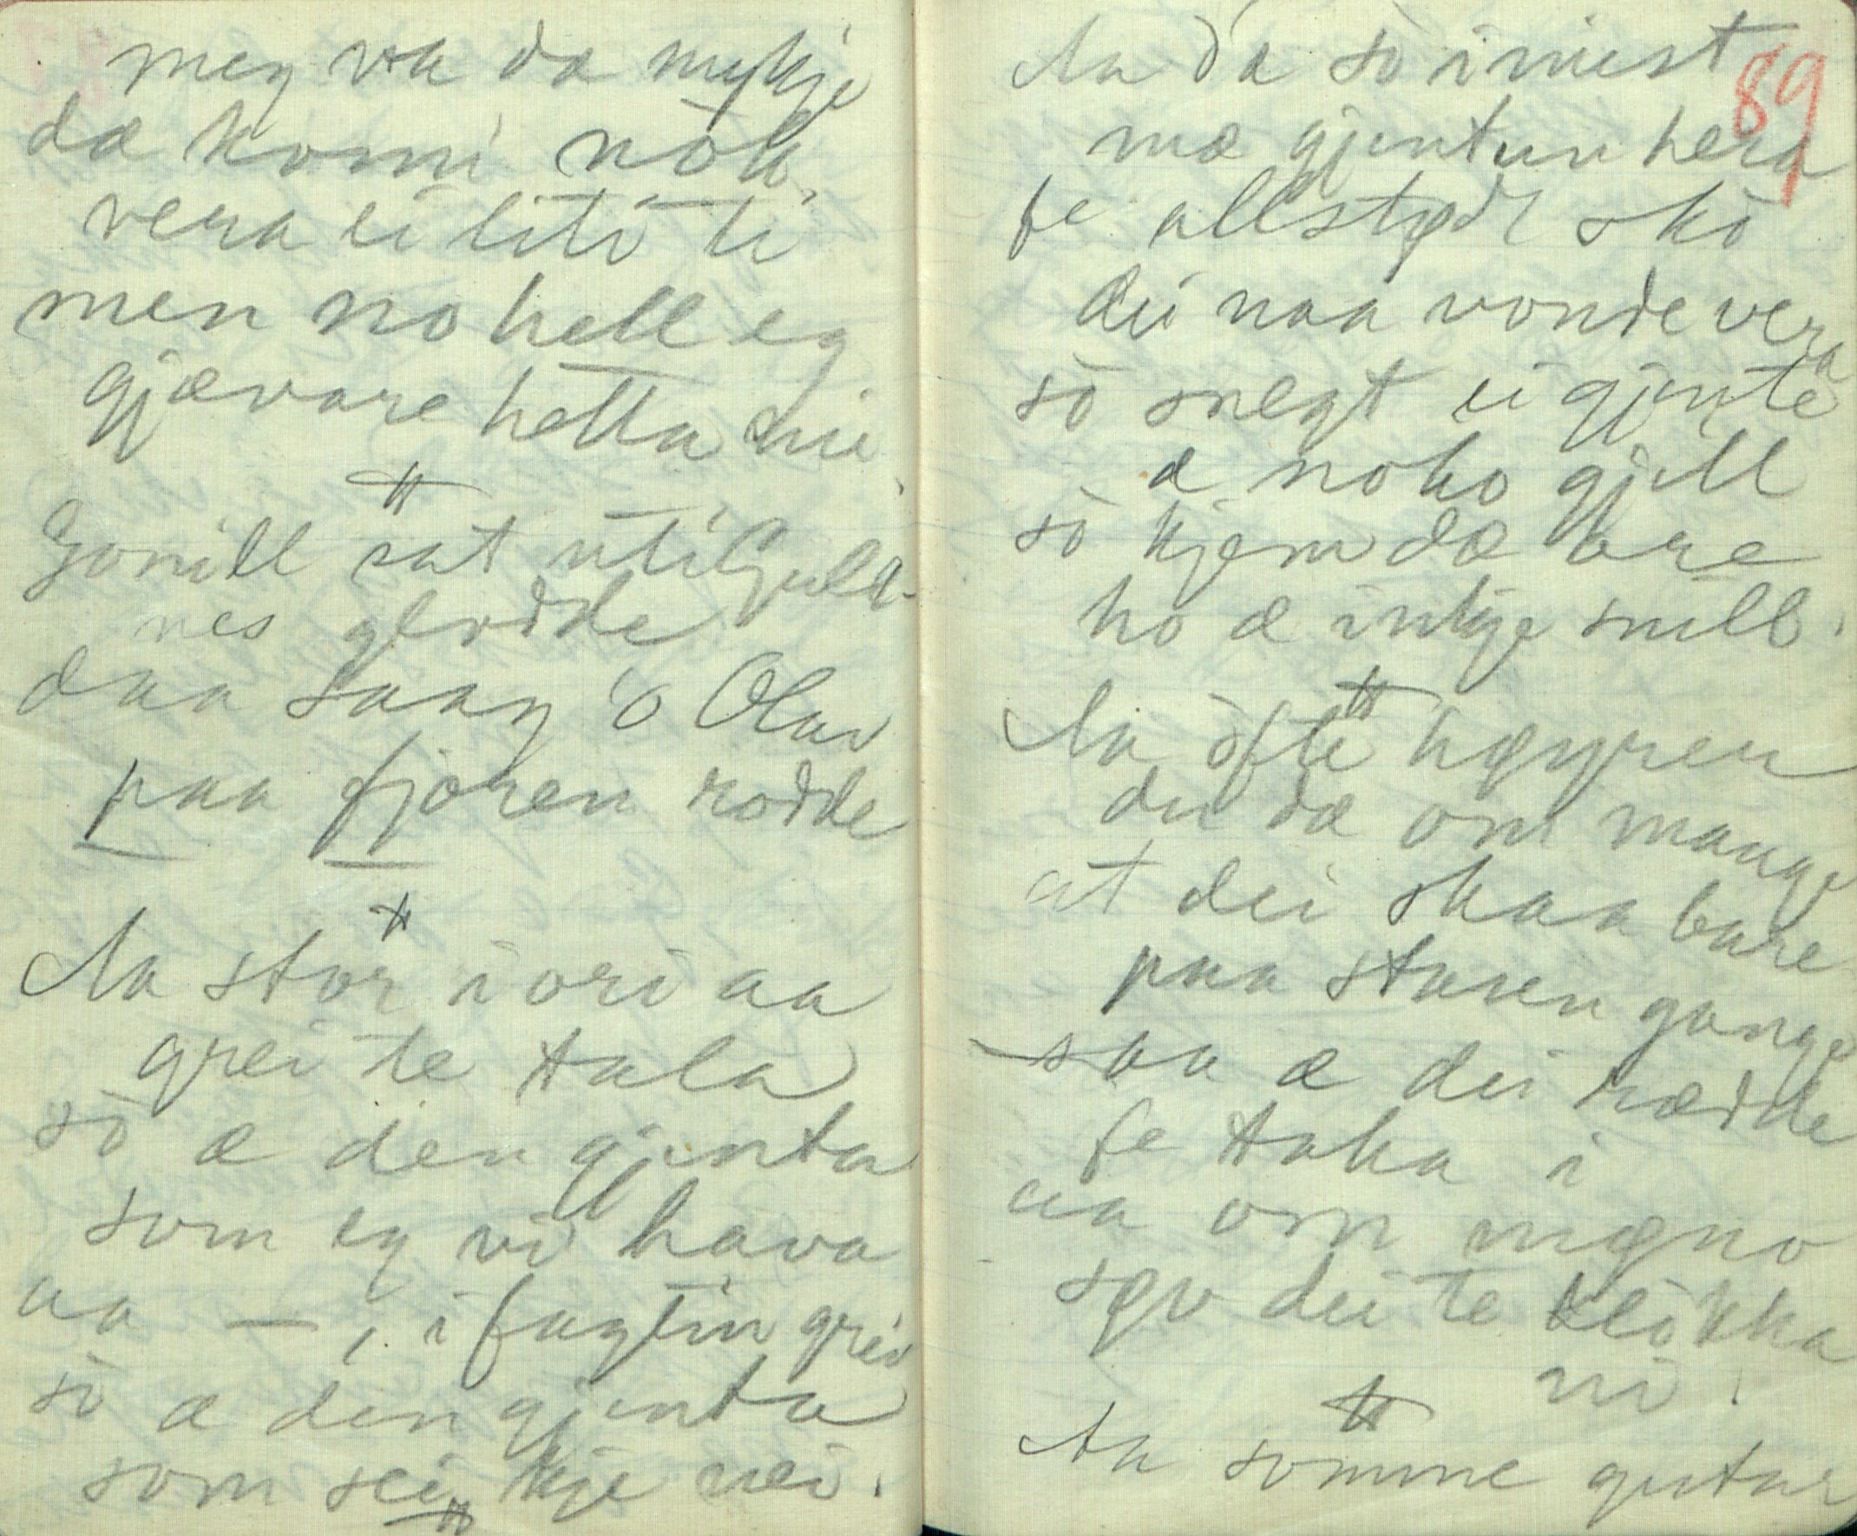 meg va dæ mykje
dæ komi nòk.
vera ei liti ti
men no hell eg
gjævare hella hii
#
Gonill sat uti Guld-
nes glodde
daa saag 'o Olav
paa fjoren rodde
#
Aa stor i ori aa
grei te tala
sò æ den gjenta
som eg vi hava
aa — , i fagtin grei
sò æ den gjenta
som sei kje nei.
#
89
Aa dæ sò imist
mæ gjentun hera
fe allstødt skò
dei naa vonde vera
sò snegt ei gjente
æ noko gjill
sò kjem dæ bre
ho æ inkje snill.
#
Aa òfte høyrer
du dæ om mange
at dei skaa bare
paa staren gange
saa æ dei rædde
fe taka i
aa om mgno
søv dei te klòkka
ni.
#
Aa somme gutar